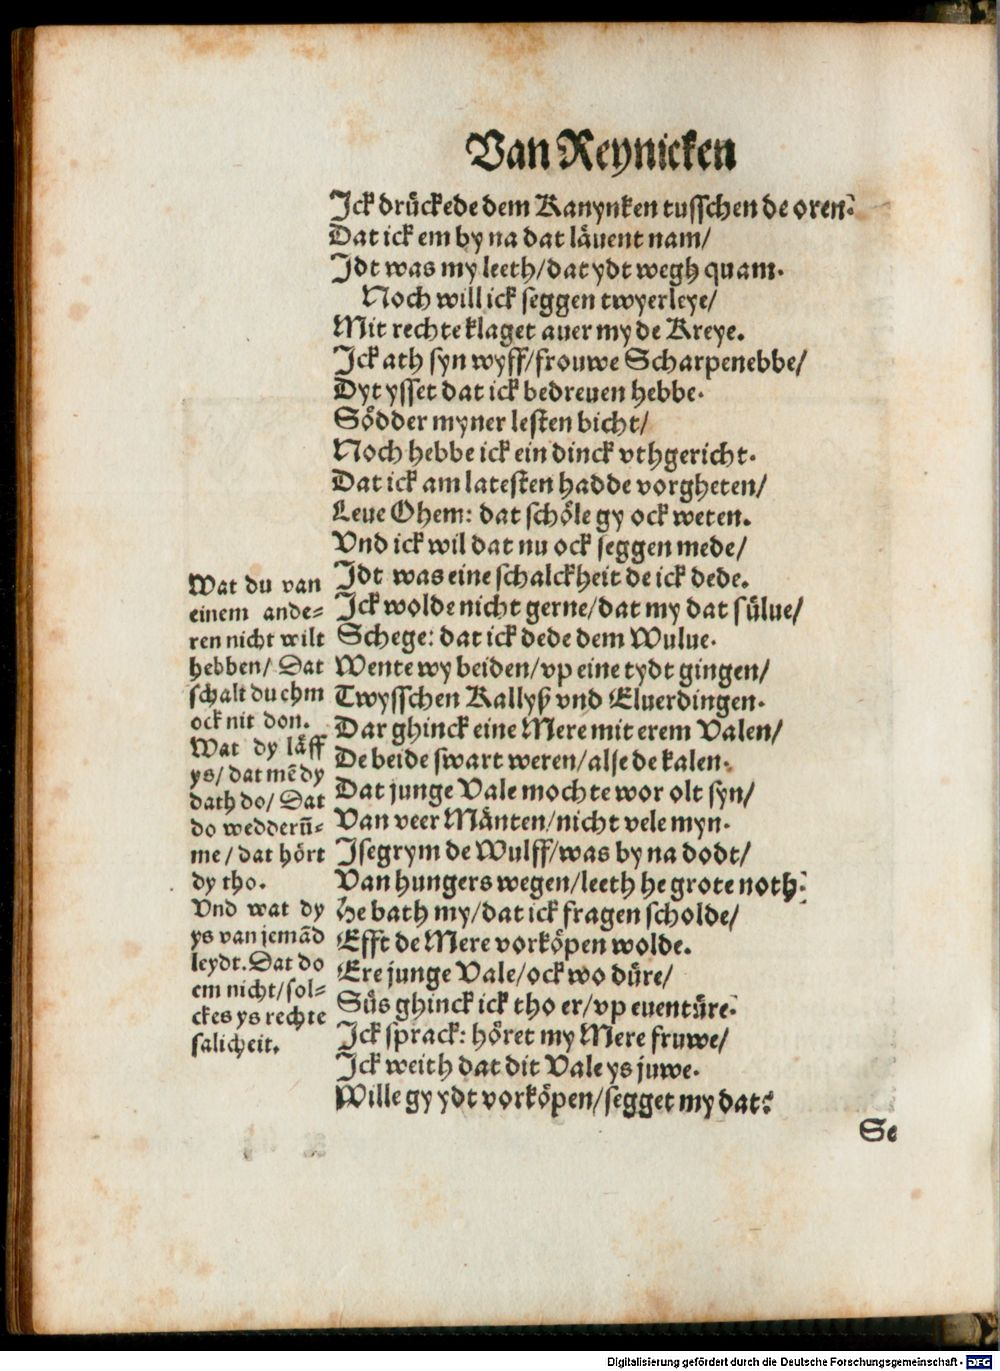 Van Reynicken
Jck drückede dem Kanynken tusschen de oren.
Dat ick em by na dat läuent nam/
Jdt was my leeth/dat ydt wegh quam.
Noch will ick seggen twyerleye/
Mit rechte klaget auer my de Kreye.
Jck ath syn wyff/frouwe Scharpenebbe/
Dyt ysset dat ick bedreuen hebbe.
Södder myner lesten bicht/
Noch hebbe ick ein dinck vthgericht.
Dat ick am latesten hadde vorgheten/
Leue Ohem: dat schöle gy ock weten.
Vnd ick wil dat nu ock seggen mede/
Jdt was eine schalckheit de ick dede.
Jck wolde nicht gerne/dat my dat sülue/
Schege: dat ick dede dem Wulue.
Wente wy beiden/vp eine tydt gingen/
Twysschen Kallyß vnd Eluerdingen.
Dar ghinck eine Mere mit erem Valen/
De beide swart weren/alse de kalen.
Dat junge Vale mochte wor olt syn/
Van veer Mänten/nicht vele myn.
Jsegrym de Wulff/was by na dodt/
Van hungers wegen/leeth he grote noth.
He bath my/dat ick fragen scholde/
Efft de Mere vorköpen wolde.
Ere junge Vale/ock wo düre/
Süs ghinck ick tho er/vp euentüre.
Jck sprack: höret my Mere fruwe/
Jck weith dat dit Vale ys juwe.
Wille gy ydt vorköpen/segget my dat:
Se
Wat du van
einem ande=
ren nicht wilt
hebben/ Dat
schalt du ehm
ock nit don.
Wat dy läff
ys/ dat mē dy
dath do/ Dat
do wedderǖ=
me/ dat hört
dy tho.
Vnd wat dy
ys van jemād
leydt. Dat do
em nicht/sol=
ckes ys rechte
salicheit.
Digitalisierung gefördert durch die Deutsche Forschungsgemeinschaft - DFG